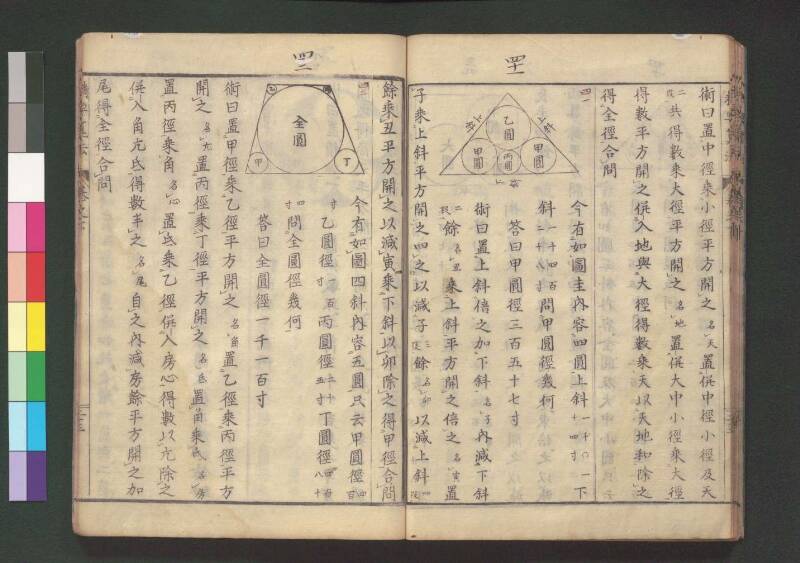 四十
術曰置中徑乘小徑平方開之名天置併中徑小徑及天
二段共得數乘大徑平方開之名地置併大中小徑乘大徑
得數平方開之併入地與大徑得數乘天以天地和除之
得全徑合問
四一
乙圓
甲圓
丙圓
甲圓
上斜
上斜
下斜
今有如圖圭內容四圓上斜
問甲圓徑幾何
答曰甲圓徑三百五十七寸
術曰置上斜倍之加下斜名子內減下斜
餘名丑乘上斜平方開之倍之名寅置
子乘上斜平方開之四之以減子餘名卯以減上斜
四二
餘乘丑平方開之以減寅乘下斜以卯除之得甲徑合問
全圓
乙
丙
甲
丁
今有如圖四斜內容五圓只云甲圓徑四百
寸乙圓徑百寸丙圓徑二十五寸丁圓徑四百八十
四寸問全圓徑幾何
答曰全圓徑一千一百寸
術曰置甲徑乘乙徑平方開之名角置乙徑乘丙徑平方
開之名亢置丙徑乘丁徑平方開之名氐置角乘氐名房
置丙徑乘角名心置氐乘乙徑併入房心得數以亢除之
併入角亢氐得數半之名尾自之內減房餘平方開之加
尾得全徑合問